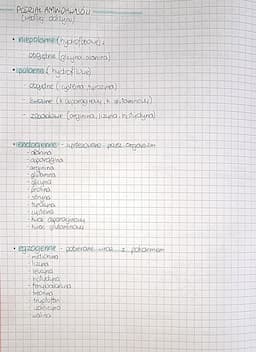 PODZIAŁ AMINOKWASÓW
• niepolarne (hydrofobowe):
- obojętne (glicyna, alanina)
• polarne (hydrofilowe)
- obojętne (cysteina, tyrozyna)
- kwaśne (k. asparaginowy, k. glutaminowy)
- zasadowe (arginina, lizyna, histydyna)
• endogenne - syntezowane przez organizm
- alanina
- asparagina
- arginina
- glutamina
- glicyna
- prolina
- seryna
- tyrozyna
- cysteina
- kwas asparaginowy
- kwas glutaminowy
• egzogenne - pobierane wraz z pokarmem
- metionina
- lizyna
- leucyna
- histydyna
- fenyloalanina
- treonina
- tryptofan
- izoleucyna
- walina